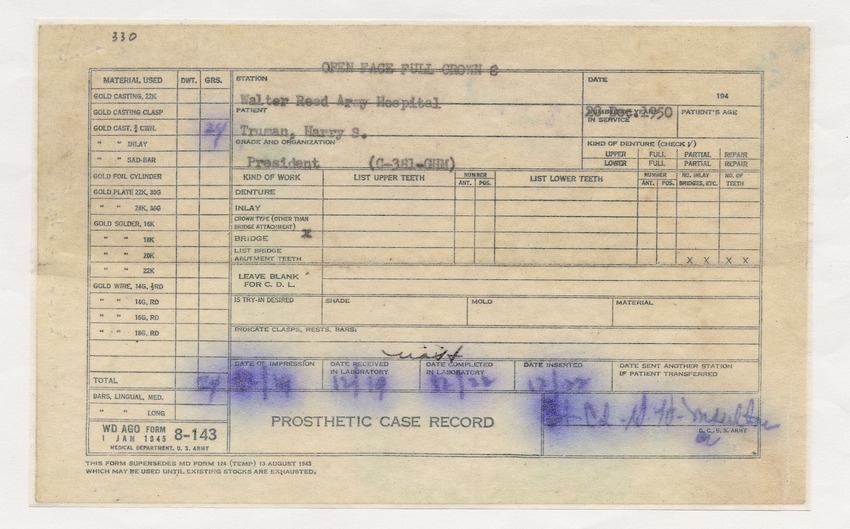 330
OPEN FACE FULL CROWN 8
MATERIAL USED DWT. GRS.
STATION
DATE
194
Walter Reed Army Hospital
GOLD CASTING, 22K
PATIENT
20 Dec. 1950
IN SERVICE
PATIENT'S AGE
GOLD CASTING CLASP
GOLD CAST. ¾ CWN. 24
Truman, Harry S.
GRADE AND ORGANIZATION
KIND OF DENTURE (CHECK √)
" " INLAY
UPPER FULL PARTIAL REPAIR
" " SAD-BAR
President (C-381-GHM)
LOWER FULL PARTIAL REPAIR
GOLD FOIL CYLINDER
KIND OF WORK LIST UPPER TEETH NUMBER ANT. POS. LIST LOWER TEETH NUMBER ANT. POS. NO. INLAY BRIDGES, ETC. NO. OF TEETH
GOLD PLATE 22K, 30G
DENTURE
" " 28K, 36G
INLAY
GOLD SOLDER, 16K
CROWN TYPE (OTHER THAN BRIDGE ATTACHMENT)
" " 18K
BRIDGE X
" " 20K
LIST BRIDGE ABUTMENT TEETH X X X X
" " 22K
LEAVE BLANK FOR C. D. L.
GOLD WIRE, 14G, ½RD
" " 14G, RD
IS TRY-IN DESIRED SHADE MOLD MATERIAL
" " 16G, RD
" " 18G, RD
INDICATE CLASPS, RESTS, BARS:
DATE OF IMPRESSION DATE RECEIVED IN LABORATORY DATE COMPLETED IN LABORATORY DATE INSERTED DATE SENT ANOTHER STATION IF PATIENT TRANSFERRED
TOTAL 24 12/19 12/19 12/22 12/22
BARS, LINGUAL, MED.
" " LONG
PROSTHETIC CASE RECORD
D. C., U. S. ARMY
WD AGO FORM 8-143
1 JAN 1945
MEDICAL DEPARTMENT, U. S. ARMY
THIS FORM SUPERSEDES MD FORM 124 (TEMP) 13 AUGUST 1943
WHICH MAY BE USED UNTIL EXISTING STOCKS ARE EXHAUSTED.